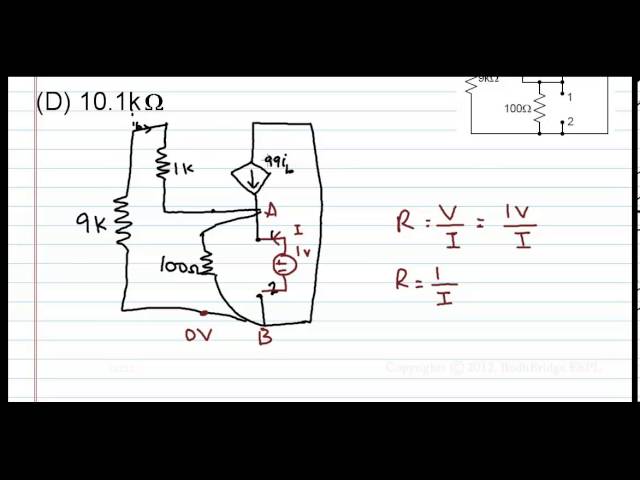 (D) 10.1kΩ
9kΩ
100Ω
1
2
i_b
1k
99i_b
9k
A
I
1
1v
100Ω
2
0V
B
R = V/I = 1V/I
R = 1/I
Copyrights © 2012, BodhBridge ESPL.